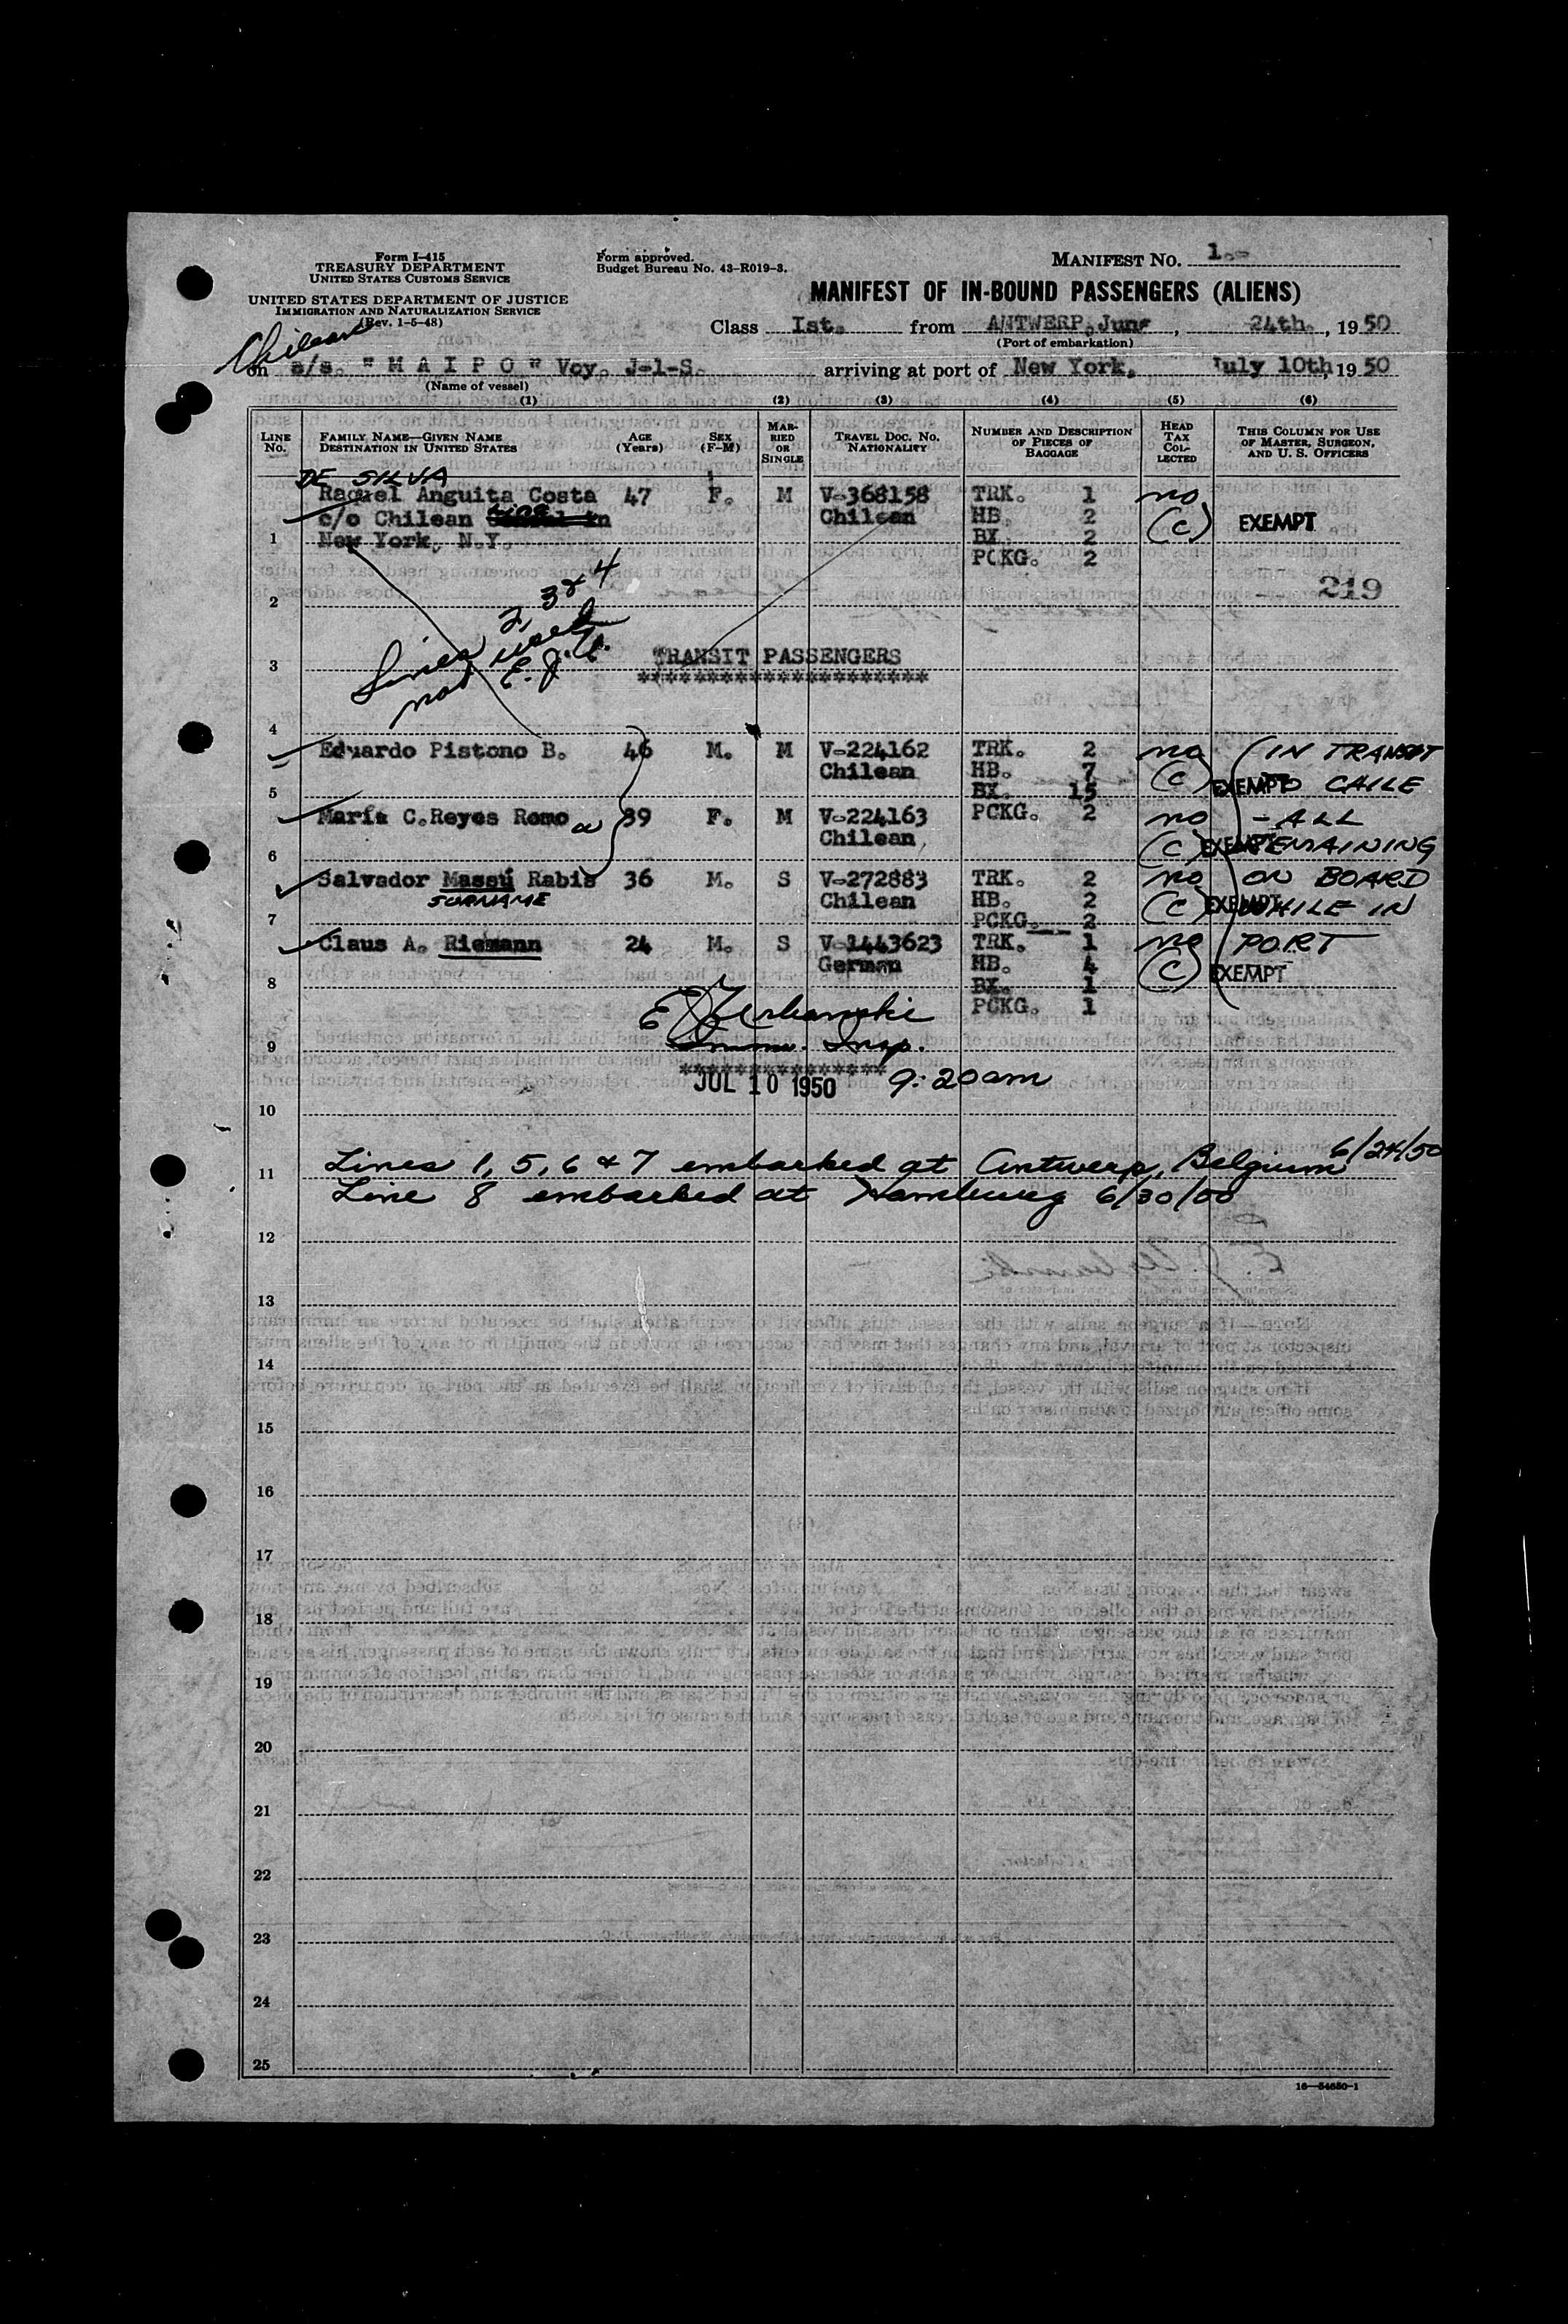 Form I-415
TREASURY DEPARTMENT
UNITED STATES CUSTOMS SERVICE
UNITED STATES DEPARTMENT OF JUSTICE
IMMIGRATION AND NATURALIZATION SERVICE
(Rev. 1-5-48)
Form approved.
Budget Bureau No. 43-R019-3.
MANIFEST NO. 1
MANIFEST OF IN-BOUND PASSENGERS (ALIENS)
Class Ist. from ANTWERP, June, 24th., 1950
(Port of embarkation)
Chilean
on s/s. "MAIPO" Voy. J-1-S. arriving at port of New York, July 10th, 1950
(Name of vessel)
(1) (2) (3) (4) (5) (6)
LINE NO. FAMILY NAME—GIVEN NAME DESTINATION IN UNITED STATES AGE (Years) SEX (F-M) MARRIED OR SINGLE TRAVEL DOC. NO. NATIONALITY NUMBER AND DESCRIPTION OF PIECES OF BAGGAGE HEAD TAX COLLECTED THIS COLUMN FOR USE OF MASTER, SURGEON, AND U. S. OFFICERS
DE SILVA
Raquel Anguita Costa 47 F. M V-368158 TRK. 1 no
c/o Chilean Line in Chilean HB. 2 (C) EXEMPT
1 New York, N.Y. BX. 2
PCKG. 2
219
2
Lines 2, 3 & 4
not used
E.J.U.
3 TRANSIT PASSENGERS
********************
4
Eduardo Pistono B. 46 M. M V-224162 TRK. 2 no (IN TRANSIT
Chilean HB. 7 (C) EXEMPT TO CHILE
5 BX. 15
María C.Reyes Romo 39 F. M V-224163 PCKG. 2 no - ALL
Chilean (C) EXEMPT REMAINING
6
Salvador Massú Rabis 36 M. S V-272883 TRK. 2 no ON BOARD
SURNAME Chilean HB. 2 (C) EXEMPT WHILE IN
7 PCKG. 2
Claus A. Riemann 24 M. S V-1443623 TRK. 1 no PORT
German HB. 4 (C) EXEMPT
8 BX. 1
PCKG. 1
E J Urbanski
9 Imm. Insp.
**************
JUL 10 1950 9:20am
10
11 Lines 1, 5, 6 & 7 embarked at Antwerp, Belgium 6/24/50
Line 8 embarked at Hamburg 6/30/50
12
13
14
15
16
17
18
19
20
21
22
23
24
25
16—54650-1